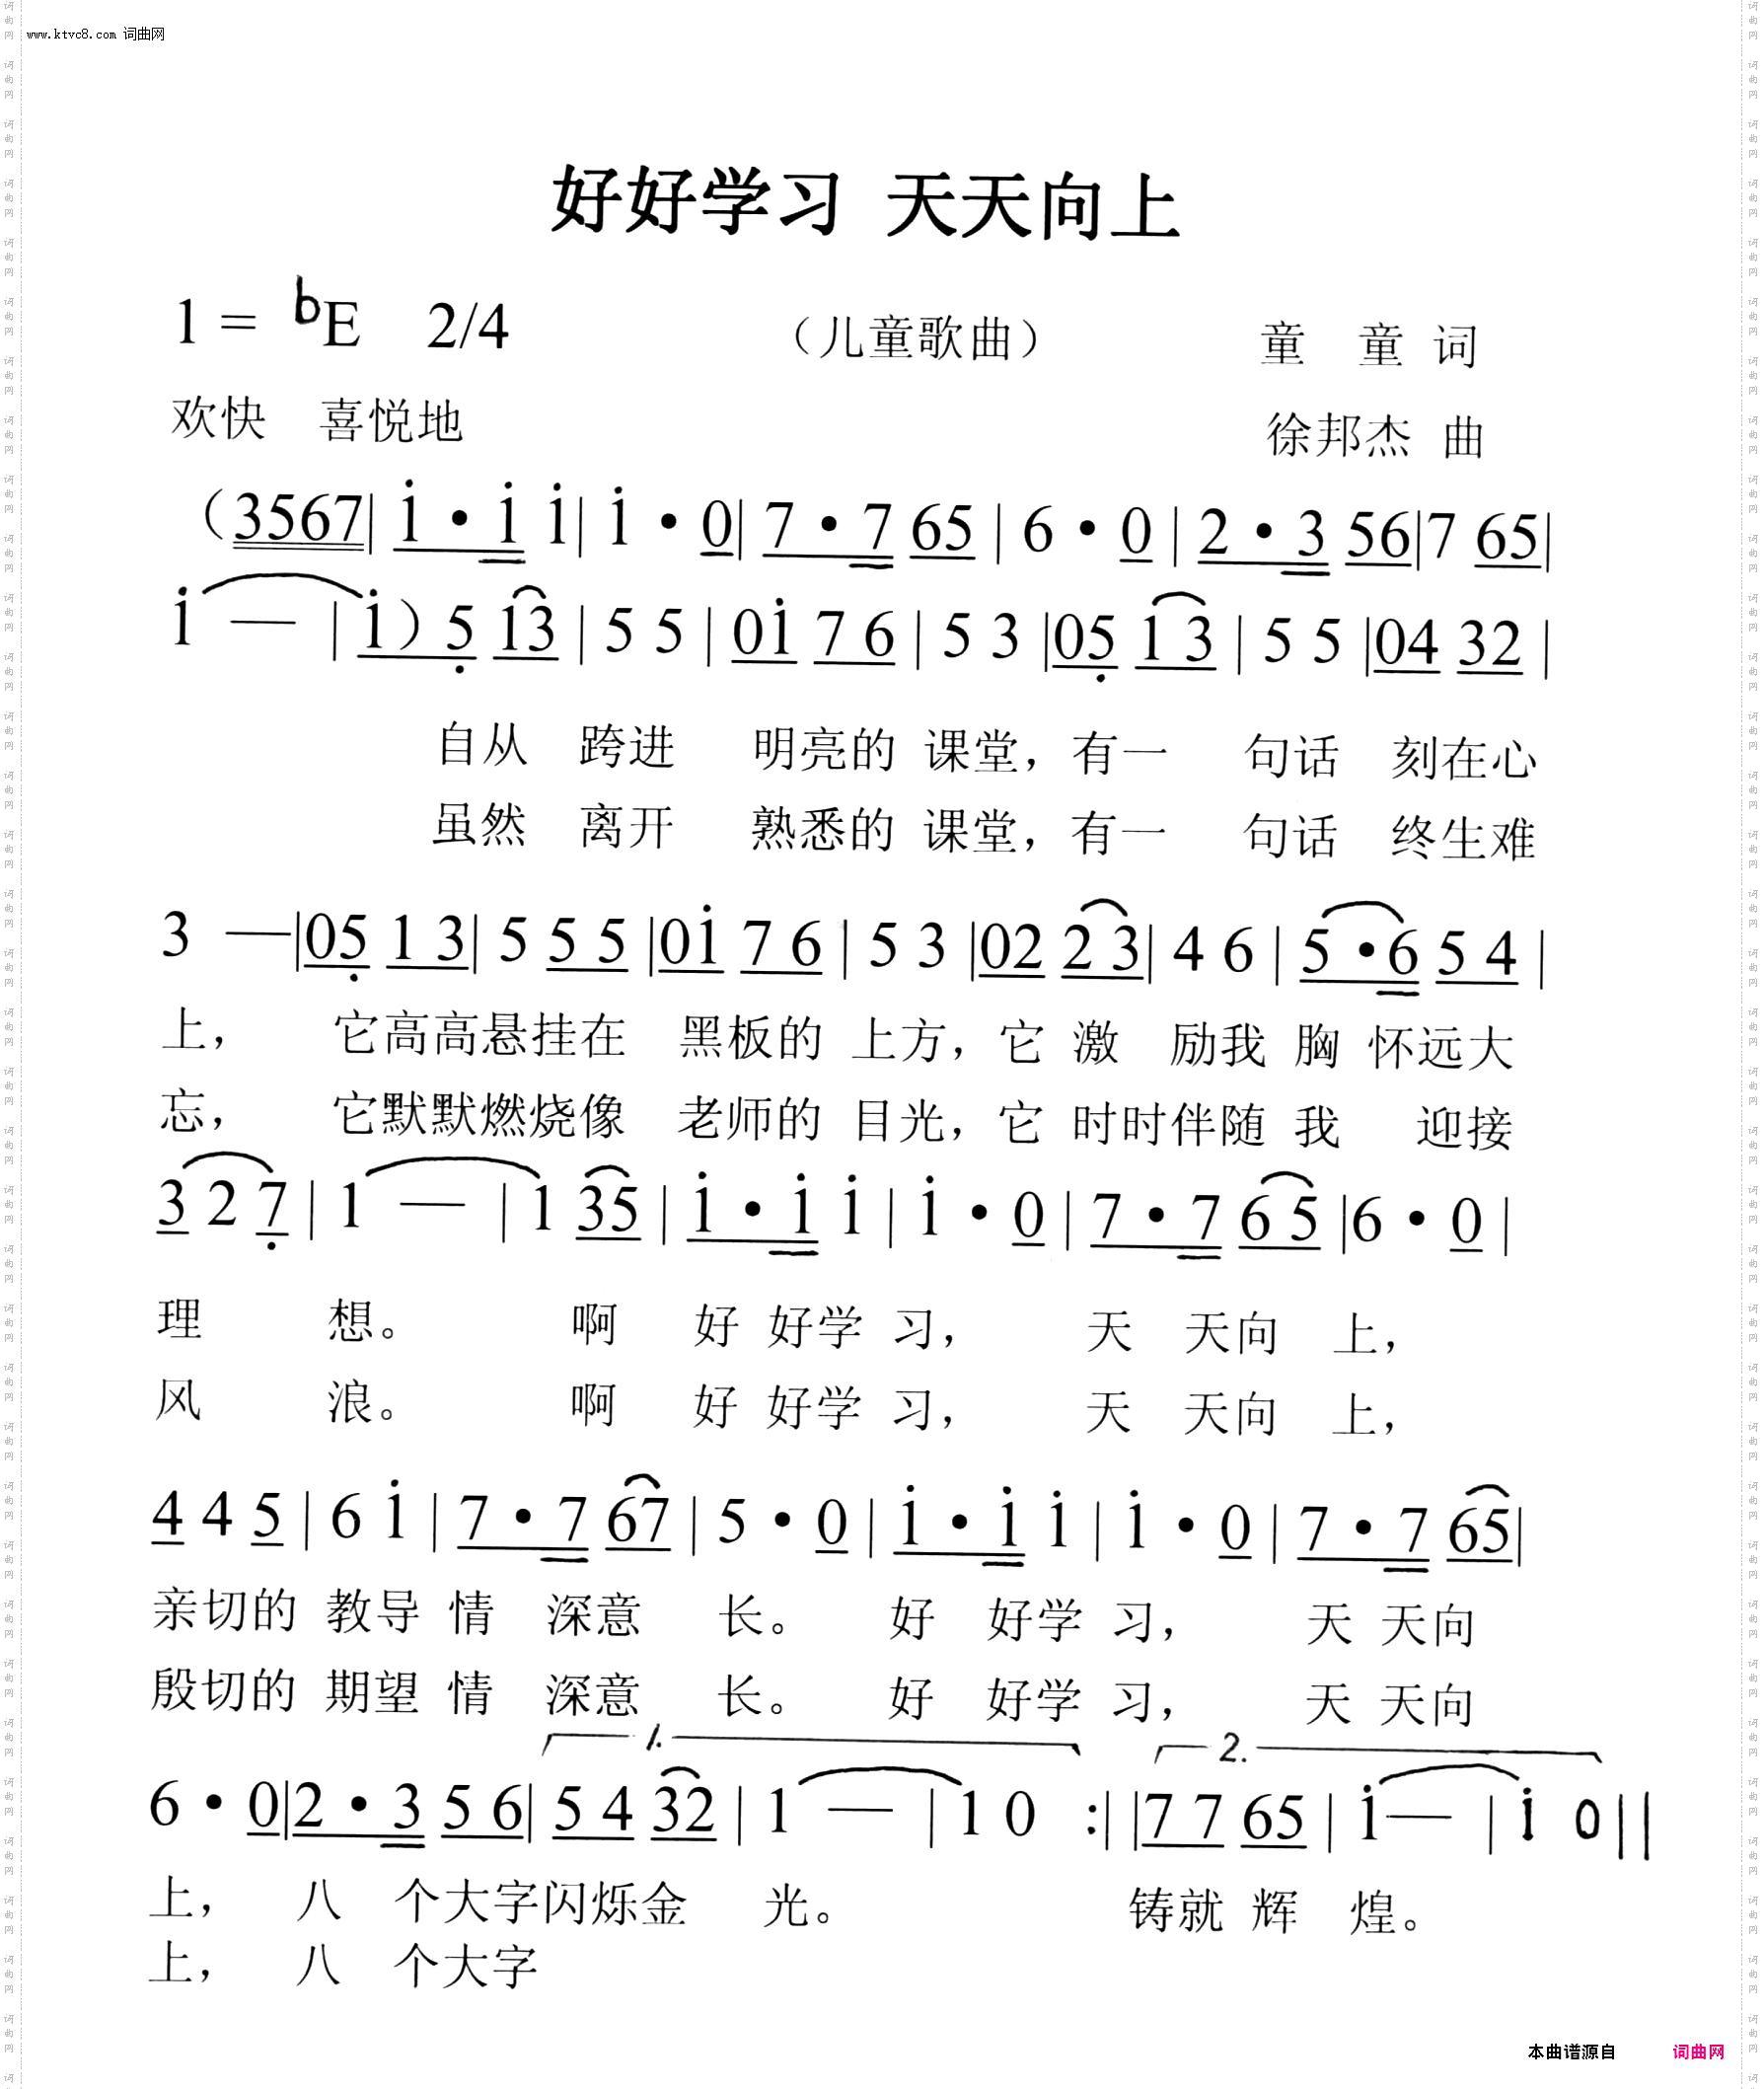 www.ktvc8.com 词曲网
好好学习 天天向上
1 = bE 2/4 （儿童歌曲） 童 童 词
欢快 喜悦地 徐邦杰 曲
（3567| i · i i| i · 0| 7 · 7 65 | 6 · 0 | 2 · 3 56|7 65|
i — | i ）5 13 | 5 5 | 0i 7 6 | 5 3 |05 1 3 | 5 5 |04 32 |
自从 跨进 明亮的 课堂，有一 句话 刻在心
虽然 离开 熟悉的 课堂，有一 句话 终生难
3 —|05 1 3| 5 5 5 |0i 7 6 | 5 3 |02 2 3| 4 6 | 5 · 6 5 4 |
上， 它高高悬挂在 黑板的 上方，它 激 励我 胸 怀远大
忘， 它默默燃烧像 老师的 目光，它 时时伴随 我 迎接
3 2 7 | 1 — | 1 35 | i · i i | i · 0 | 7 · 7 6 5 |6 · 0 |
理 想。 啊 好 好学 习， 天 天向 上，
风 浪。 啊 好 好学 习， 天 天向 上，
4 4 5 | 6 i | 7 · 7 67 | 5 · 0 | i · i i | i · 0 | 7 · 7 65|
亲切的 教导 情 深意 长。 好 好学 习， 天 天向
殷切的 期望 情 深意 长。 好 好学 习， 天 天向
1. 2.
6 · 0|2 · 3 5 6| 5 4 32 | 1 — |1 0 :| |7 7 65 | i— | i 0 ||
上， 八 个大字闪烁金 光。 铸就 辉 煌。
上， 八 个大字
本曲谱源自 词曲网